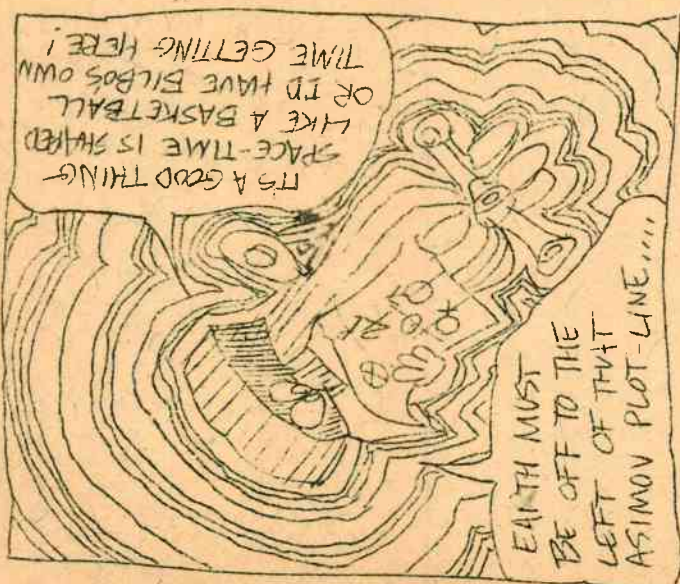 IT'S A GOOD THING
SPACE-TIME IS SHAPED
LIKE A BASKETBALL
OR I'D HAVE BILBO'S OWN
TIME GETTING HERE!
EARTH MUST
BE OFF TO THE
LEFT OF THAT
ASIMOV PLOT-LINE.....